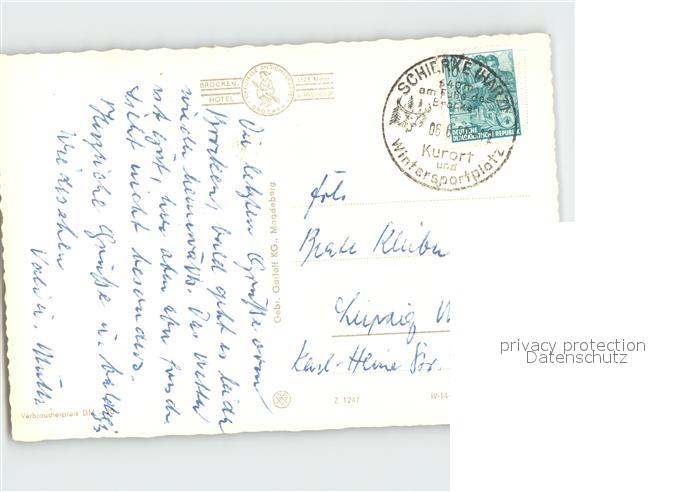 BROCKEN-
HOTEL
1142 Meter
Die letzten Grüße vom
Brocken, bald geht es leider
wieder heimwärts. Das Wetter
ist gut, hier oben aber
Sicht nicht besonders.
Herzliche Grüße u. baldiges
Wiedersehen
Vati u. Mutti
Verbraucherpreis DM
Gebr. Garloff KG., Magdeburg
SCHIERKE (HARZ)
am Fuße des
Brocken
06
Kurort
und
Wintersportplatz
DEUTSCHE
DEMOKRATISCHE REPUBLIK
Frls.
Beate Kleiber
Leipzig W
Karl-Heine Str.
Z 1247
IV-14-
privacy protection
Datenschutz